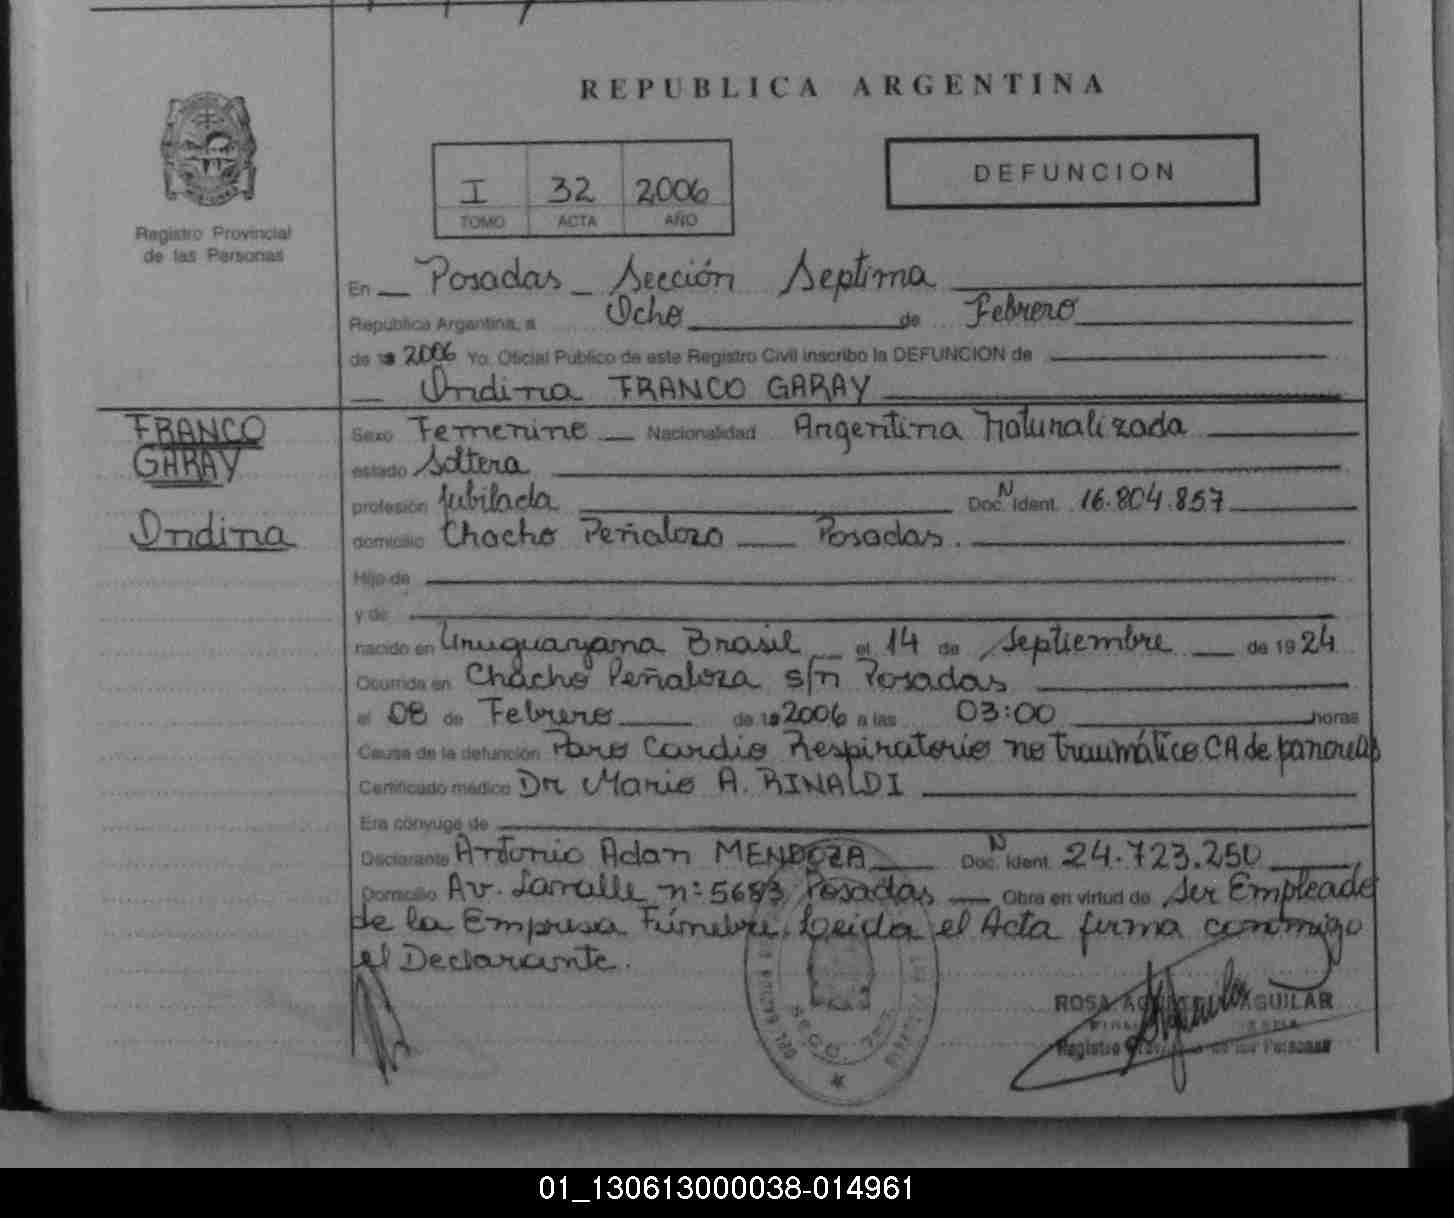 REPUBLICA ARGENTINA
I 32 2006
TOMO ACTA AÑO
DEFUNCION
Registro Provincial
de las Personas
En Posadas Sección Septima
República Argentina, a Ocho de Febrero
de 19 2006 Yo. Oficial Público de este Registro Civil inscribo la DEFUNCION de
Ondina FRANCO GARAY
FRANCO
GARAY
Ondina
Sexo Femenino Nacionalidad Argentina Naturalizada
estado Soltera
profesión Jubilada Doc. N Ident. 16.804.857
domicilio Chacho Peñaloza Posadas.
Hijo de
y de
nacido en Uruguayana Brasil el 14 de Septiembre de 1924
Ocurrida en Chacho Peñaloza s/n Posadas
el 08 de Febrero de 19 2006 a las 03:00 horas
Causa de la defunción Paro Cardio Respiratorio no traumático CA de pancreas
Certificado médico Dr Mario A. RINALDI
Era cónyuge de
Declarante Antonio Adan MENDOZA Doc. N Ident. 24.723.250
Domicilio Av. Lavalle n: 5683 Posadas Obra en virtud de Ser Empleado
de la Empresa Fúnebre. Leida el Acta firma conmigo
el Declarante.
ROSA AGUILAR
Registro de las Personas
01_130613000038-014961